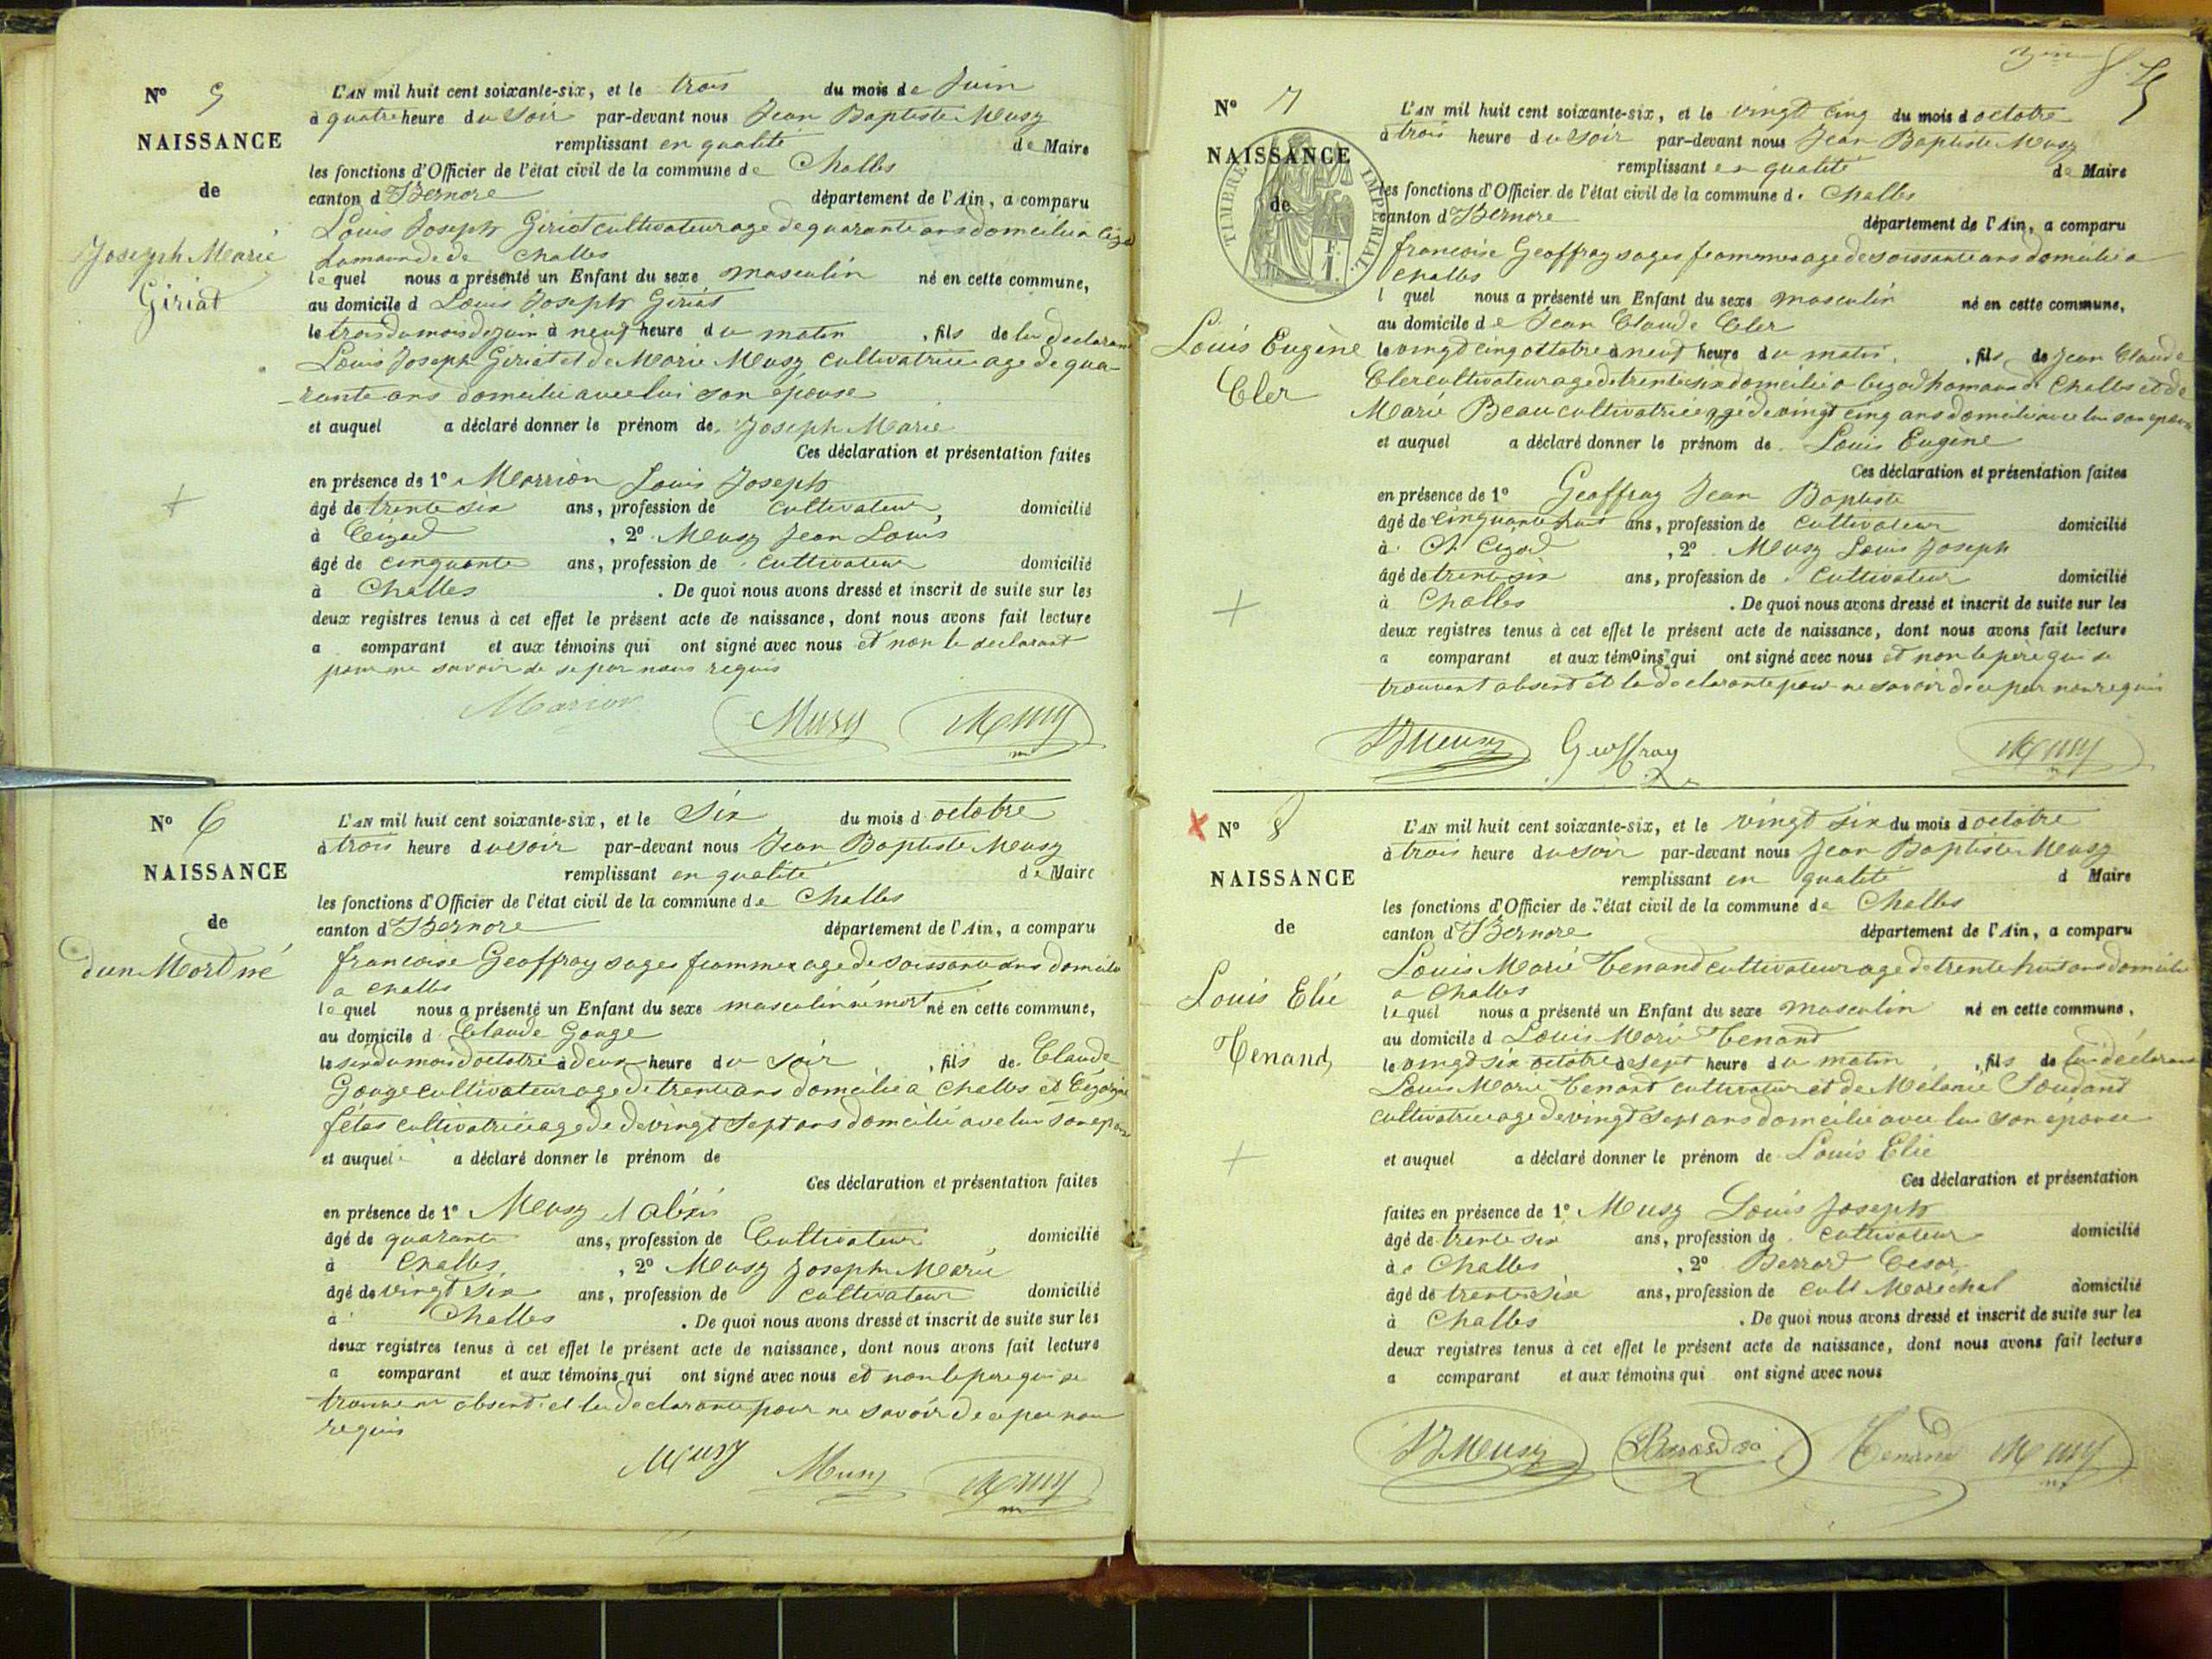 N° 5
NAISSANCE
de
Joseph Marie
Giriat
L'AN mil huit cent soixante-six, et le trois du mois de Juin
à quatre heure du Soir par-devant nous Jean Baptiste Musy
remplissant en qualité de Maire
les fonctions d'Officier de l'état civil de la commune de Challes
canton d'Izernore département de l'Ain, a comparu
Louis Joseph Giriat cultivateur age de quarante ans domicilié a
de Challes
lequel nous a présenté un Enfant du sexe masculin né en cette commune,
au domicile d Louis Joseph Giriat
le trois du mois de juin à neuf heure du matin, fils de lui declarant
Louis Joseph Giriat et de Marie Musy cultivatrice age de qua-
rante ans domicilié avec lui son épouse
et auquel a déclaré donner le prénom de Joseph Marie
Ces déclaration et présentation faites
en présence de 1° Marrion Louis Joseph
âgé de trente six ans, profession de cultivateur, domicilié
à Cizod, 2° Musy Jean Louis
âgé de cinquante ans, profession de cultivateur domicilié
à Challes. De quoi nous avons dressé et inscrit de suite sur les
deux registres tenus à cet effet le présent acte de naissance, dont nous avons fait lecture
a comparant et aux témoins qui ont signé avec nous et non le declarant
pour ne savoir de ce par nous requis
Marion Musy Musy
N° 6
NAISSANCE
de
d'un Mort né
L'AN mil huit cent soixante-six, et le Six du mois d octobre
à trois heure du soir par-devant nous Jean Baptiste Musy
remplissant en qualité de Maire
les fonctions d'Officier de l'état civil de la commune de Challes
canton d'Izernore département de l'Ain, a comparu
francoise Geoffray sages femme age de soissante ans domicilié
a Challes
lequel nous a présenté un Enfant du sexe masculin né mort né en cette commune,
au domicile d Claude Gouge
le six du mois d'octobre à deux heure du soir, fils de Claude
Gouge cultivateur age de trente ans domicilié a Challes et
cultivatrice age de vingt sept ans domicilié avec lui son epouse
et auquel a déclaré donner le prénom de
Ces déclaration et présentation faites
en présence de 1° Musy alexis
âgé de quarante ans, profession de Cultivateur domicilié
à Challes, 2° Musy Joseph Marie
âgé de vingt six ans, profession de cultivateur domicilié
à Challes. De quoi nous avons dressé et inscrit de suite sur les
deux registres tenus à cet effet le présent acte de naissance, dont nous avons fait lecture
a comparant et aux témoins qui ont signé avec nous et non le pere qui se
trouvent absent et la declarante pour ne savoir de ce par nous
requis
Musy Musy Musy
N° 7
NAISSANCE
de
TIMBRE IMPÉRIAL
Louis Eugène
Cler
L'AN mil huit cent soixante-six, et le vingt cinq du mois d octobre
à trois heure du soir par-devant nous Jean Baptiste Musy
remplissant en qualité de Maire
les fonctions d'Officier de l'état civil de la commune d. Challes
canton d'Izernore département de l'Ain, a comparu
francoise Geoffray sages femme age de soissante ans domicilié a
Challes
l quel nous a présenté un Enfant du sexe masculin né en cette commune,
au domicile de Jean Claude Cler
le vingt cinq octobre à neuf heure du matin, fils de Jean Claude
Cler cultivateur age de trente six domicilié a Cizod hamau de Challes et de
Marie Beau cultivatrice agé de vingt cinq ans domicilié avec lui son epouse
et auquel a déclaré donner le prénom de Louis Eugène
Ces déclaration et présentation faites
en présence de 1° Geoffray Jean Baptiste
âgé de cinquante huit ans, profession de cultivateur domicilié
à Cizod, 2° Musy Louis Joseph
âgé de trente six ans, profession de Cultivateur domicilié
à Challes. De quoi nous avons dressé et inscrit de suite sur les
deux registres tenus à cet effet le présent acte de naissance, dont nous avons fait lecture
a comparant et aux témoins qui ont signé avec nous et non le pere qui se
trouvent absent et la declarante pour ne savoir de ce par nous requis
Musy Geoffray Musy
N° 8
NAISSANCE
de
Louis Elie
Tenand
L'AN mil huit cent soixante-six, et le vingt six du mois d octobre
à trois heure du soir par-devant nous Jean Baptiste Musy
remplissant en qualité d Maire
les fonctions d'Officier de l'état civil de la commune de Challes
canton d'Izernore département de l'Ain, a comparu
Louis Marie Tenand cultivateur age de trente huit ans domicilié
a Challes
lequel nous a présenté un Enfant du sexe masculin né en cette commune,
au domicile d Louis Marie Tenand
le vingt six octobre à sept heure du matin, fils de lui déclarant
Louis Marie Tenant cultivateur et de Mélanie
cultivatrice age de vingt sept ans domicilié avec lui son épouse
et auquel a déclaré donner le prénom de Louis Elie
Ces déclaration et présentation
faites en présence de 1° Musy Louis Joseph
âgé de trente six ans, profession de cultivateur domicilié
à Challes, 2° Berrard Cesar
âgé de trente six ans, profession de cult Maréchal domicilié
à Challes. De quoi nous avons dressé et inscrit de suite sur les
deux registres tenus à cet effet le présent acte de naissance, dont nous avons fait lecture
a comparant et aux témoins qui ont signé avec nous
Musy Tenand Musy